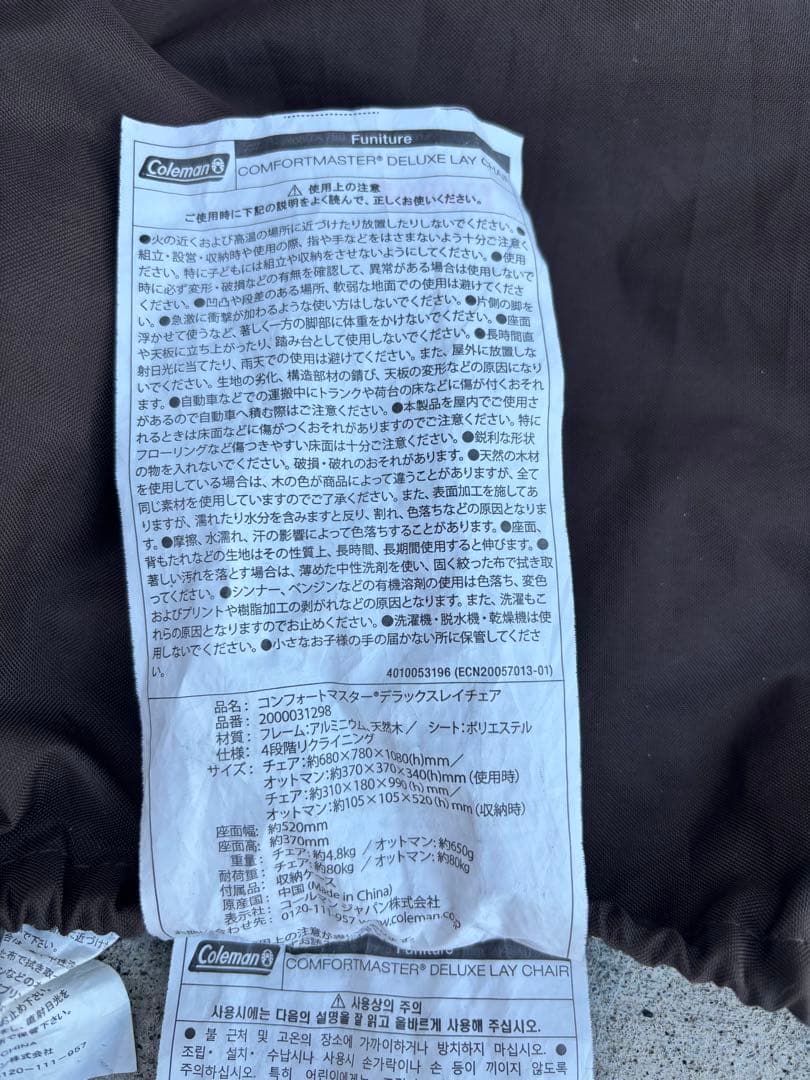 Funiture
Coleman
COMFORTMASTER® DELUXE LAY CHAIR
⚠ 使用上の注意
ご使用時に下記の説明をよく読んで、正しくお使いください。
●火の近くおよび高温の場所に近づけたり放置したりしないでください。●
組立・設営・収納時や使用の際、指や手などをはさまないよう十分ご注意く
ださい。特に子どもには組立や収納をさせないようにしてください。●使用
時に必ず変形・破損などの有無を確認して、異常がある場合は使用しないで
ください。●凹凸や段差のある場所、軟弱な地面での使用は避けてくださ
い。●急激に衝撃が加わるような使い方はしないでください。●片側の脚を
浮かせて使うなど、著しく一方の脚部に体重をかけないでください。●座面
や天板に立ち上がったり、踏み台として使用しないでください。●長時間直
射日光に当てたり、雨天での使用は避けてください。また、屋外に放置しな
いでください。生地の劣化、構造部材の錆び、天板の変形などの原因になり
ます。●自動車などでの運搬中にトランクや荷台の床などに傷が付くおそれ
があるので自動車へ積む際はご注意ください。●本製品を屋内でご使用さ
れるときは床面などに傷がつくおそれがありますのでご注意ください。特に
フローリングなど傷つきやすい床面は十分ご注意ください。●鋭利な形状
の物を入れないでください。破損・破れのおそれがあります。●天然の木材
を使用している場合は、木の色が商品によって違うことがありますが、全て
同じ素材を使用していますのでご了承ください。また、表面加工を施してあ
りますが、濡れたり水分を含みますと反り、割れ、色落ちなどの原因となりま
す。●摩擦、水濡れ、汗の影響によって色落ちすることがあります。●座面、
背もたれなどの生地はその性質上、長時間、長期間使用すると伸びます。●
著しい汚れを落とす場合は、薄めた中性洗剤を使い、固く絞った布で拭き取
ってください。●シンナー、ベンジンなどの有機溶剤の使用は色落ち、変色
およびプリントや樹脂加工の剥がれなどの原因となります。また、洗濯もこ
れらの原因となりますのでお止めください。●洗濯機・脱水機・乾燥機は使
用しないでください。●小さなお子様の手の届かない所に保管してくださ
い。
4010053196 (ECN20057013-01)
品名：コンフォートマスター®デラックスレイチェア
品番：2000031298
材質：フレーム:アルミニウム、天然木／ シート:ポリエステル
仕様：4段階リクライニング
サイズ：チェア:約680×780×1080(h)mm／
オットマン:約370×370×340(h)mm (使用時)
チェア:約310×180×990(h) mm／
オットマン:約105×105×520(h) mm (収納時)
座面幅：約520mm
座面高：約370mm
重量：チェア:約4.8kg / オットマン:約650g
耐荷重：チェア:約80kg / オットマン:約80kg
付属品：収納ケース
原産国：中国 (Made in China)
表示社：コールマン ジャパン株式会社
お問い合わせ先：0120-111-957 www.coleman.co
Funiture
Coleman
COMFORTMASTER® DELUXE LAY CHAIR
⚠ 사용상의 주의
사용시에는 다음의 설명을 잘 읽고 올바르게 사용해 주십시오.
● 불 근처 및 고온의 장소에 가까이하거나 방치하지 마십시오. ●
조립· 설치· 수납시나 사용시 손가락이나 손 등이 끼이지 않도록
주의하십시오. 특히 어린이에게는
CHINA
株式会社
120-111-957